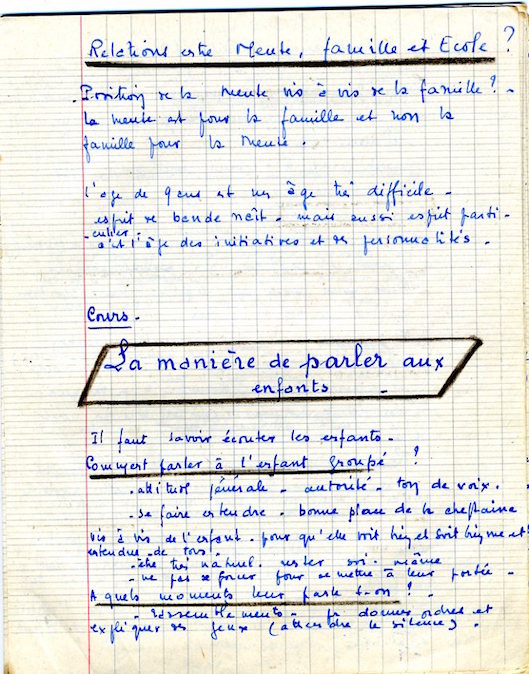 Relations entre Meute, famille et Ecole ?
. Position de la meute vis à vis de la famille ? -
la meute est pour la famille et non la
famille pour la meute .
l'âge de 9 ans est un âge très difficile -
esprit de bande naît - mais aussi esprit parti-
-culier.
c'est l'âge des initiatives et des personnalités .
Cours .
La manière de parler aux
enfants -
Il faut savoir écouter les enfants -
Comment parler à l'enfant groupé ?
. attitude générale - autorité - ton de voix .
. se faire entendre - bonne place de la cheftaine
vis à vis de l'enfant . pour qu'elle voit bien et soit bien vue et
entendue de tous .
. être très naturel . rester soi-même
- ne pas se forcer pour se mettre à leur portée -
A quels moments leur parle t-on ? -
- rassemblements - donner ordres et
expliquer des jeux (attendre le silence) .